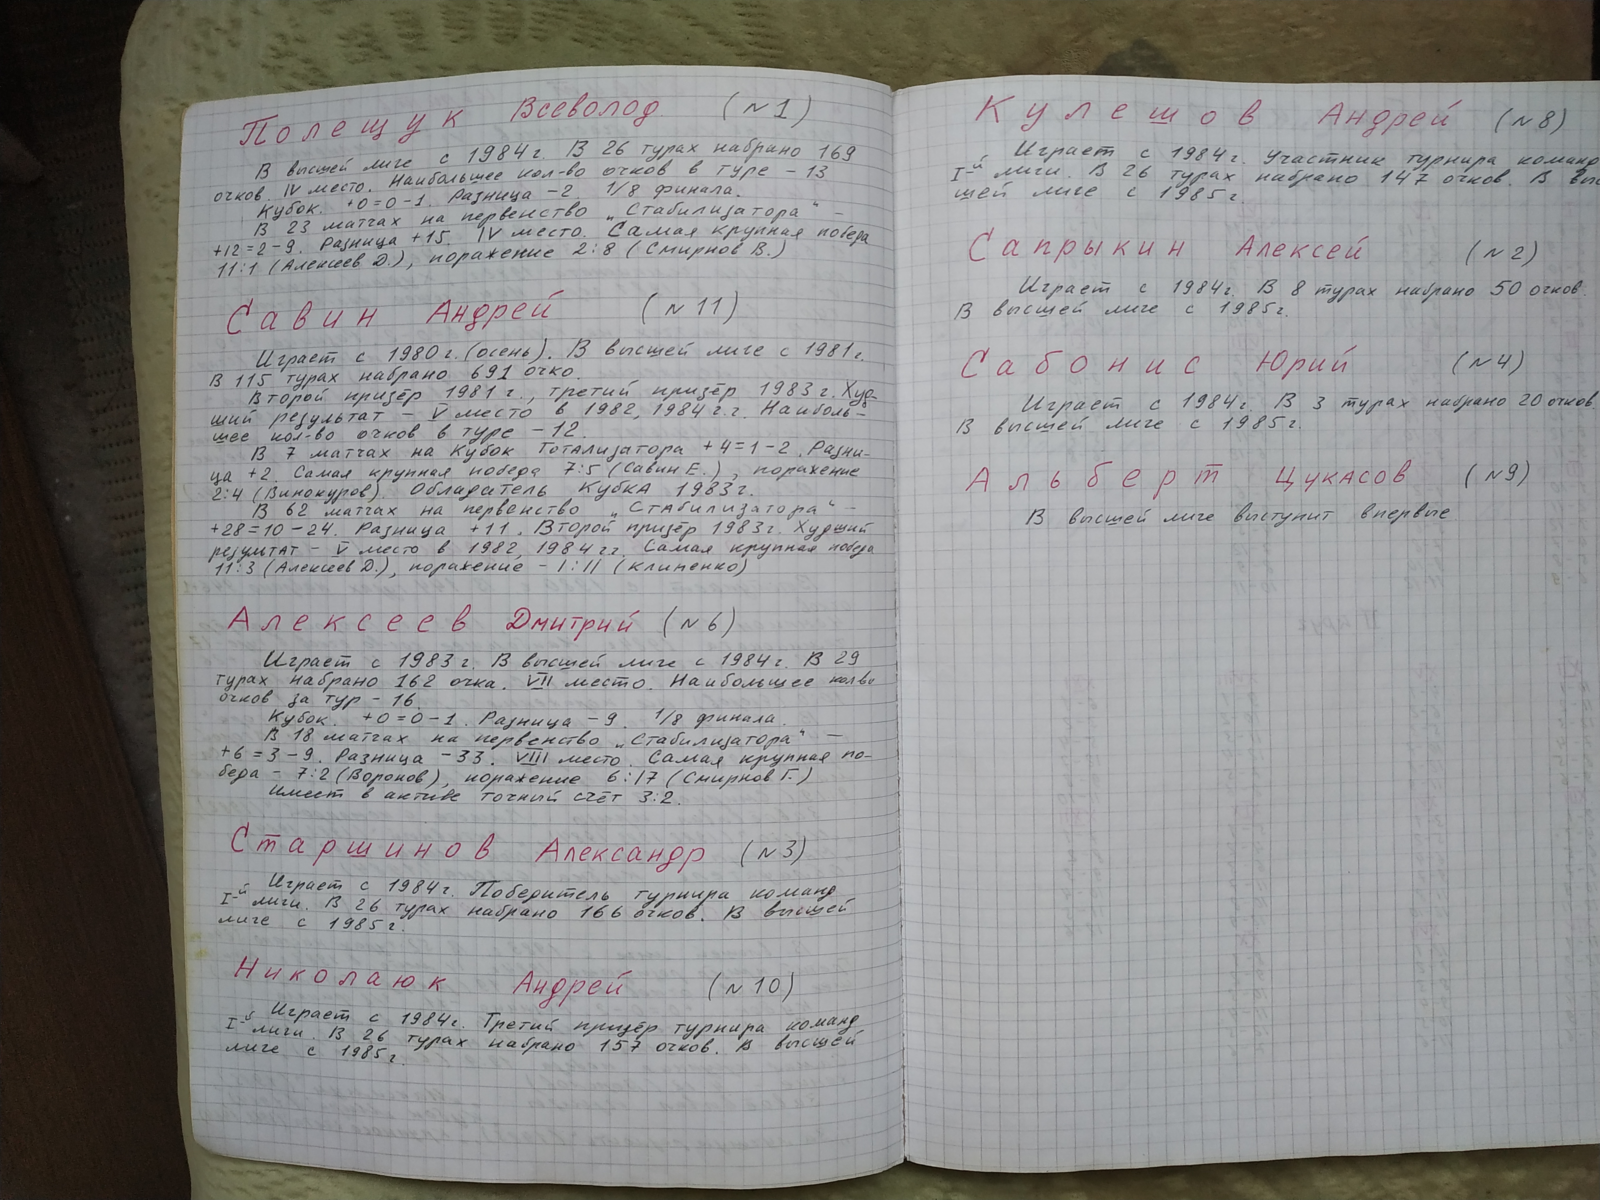 Полещук Всеволод (№1)
В высшей лиге с 1984г. В 26 турах набрано 169
очков. IV место. Наибольшее кол-во очков в туре – 13
Кубок. +0=0–1. Разница –2. 1/8 финала.
В 23 матчах на первенство „Стабилизатора“ –
+12=2–9. Разница +15. IV место. Самая крупная победа
11:1 (Алексеев Д.), поражение 2:8 (Смирнов В.)
Савин Андрей (№11)
Играет с 1980г. (осень). В высшей лиге с 1981г.
В 115 турах набрано 691 очко.
Второй призёр 1981г., третий призёр 1983г. Худ-
ший результат – V место в 1982, 1984г.г. Наиболь-
шее кол-во очков в туре – 12.
В 7 матчах на Кубок Тотализатора +4=1–2. Разни-
ца +2. Самая крупная победа 7:5 (Савин Е.), поражение
2:4 (Винокуров). Обладатель Кубка 1983г.
В 62 матчах на первенство „Стабилизатора“ –
+28=10–24. Разница +11. Второй призёр 1983г. Худший
результат – V место в 1982, 1984гг. Самая крупная победа
11:3 (Алексеев Д.), поражение – 1:11 (Клименко)
Алексеев Дмитрий (№6)
Играет с 1983г. В высшей лиге с 1984г. В 29
турах набрано 162 очка. VII место. Наибольшее кол-во
очков за тур – 16.
Кубок. +0=0–1. Разница –9. 1/8 финала.
В 18 матчах на первенство „Стабилизатора“ –
+6=3–9. Разница –33. VIII место. Самая крупная по-
беда – 7:2 (Воронов), поражение 6:17 (Смирнов Г.)
Имеет в активе точный счёт 3:2.
Старшинов Александр (№3)
Играет с 1984г. Победитель турнира команд
I-й лиги. В 26 турах набрано 166 очков. В высшей
лиге с 1985г.
Николаюк Андрей (№10)
Играет с 1984г. Третий призёр турнира команд
I-й лиги. В 26 турах набрано 157 очков. В высшей
лиге с 1985г.
Кулешов Андрей (№8)
Играет с 1984г. Участник турнира команд
I-й лиги. В 26 турах набрано 147 очков. В выс
шей лиге с 1985г.
Сапрыкин Алексей (№2)
Играет с 1984г. В 8 турах набрано 50 очков.
В высшей лиге с 1985г.
Сабонис Юрий (№4)
Играет с 1984г. В 3 турах набрано 20 очков
В высшей лиге с 1985г.
Альберт Цукасов (№9)
В высшей лиге выступит впервые